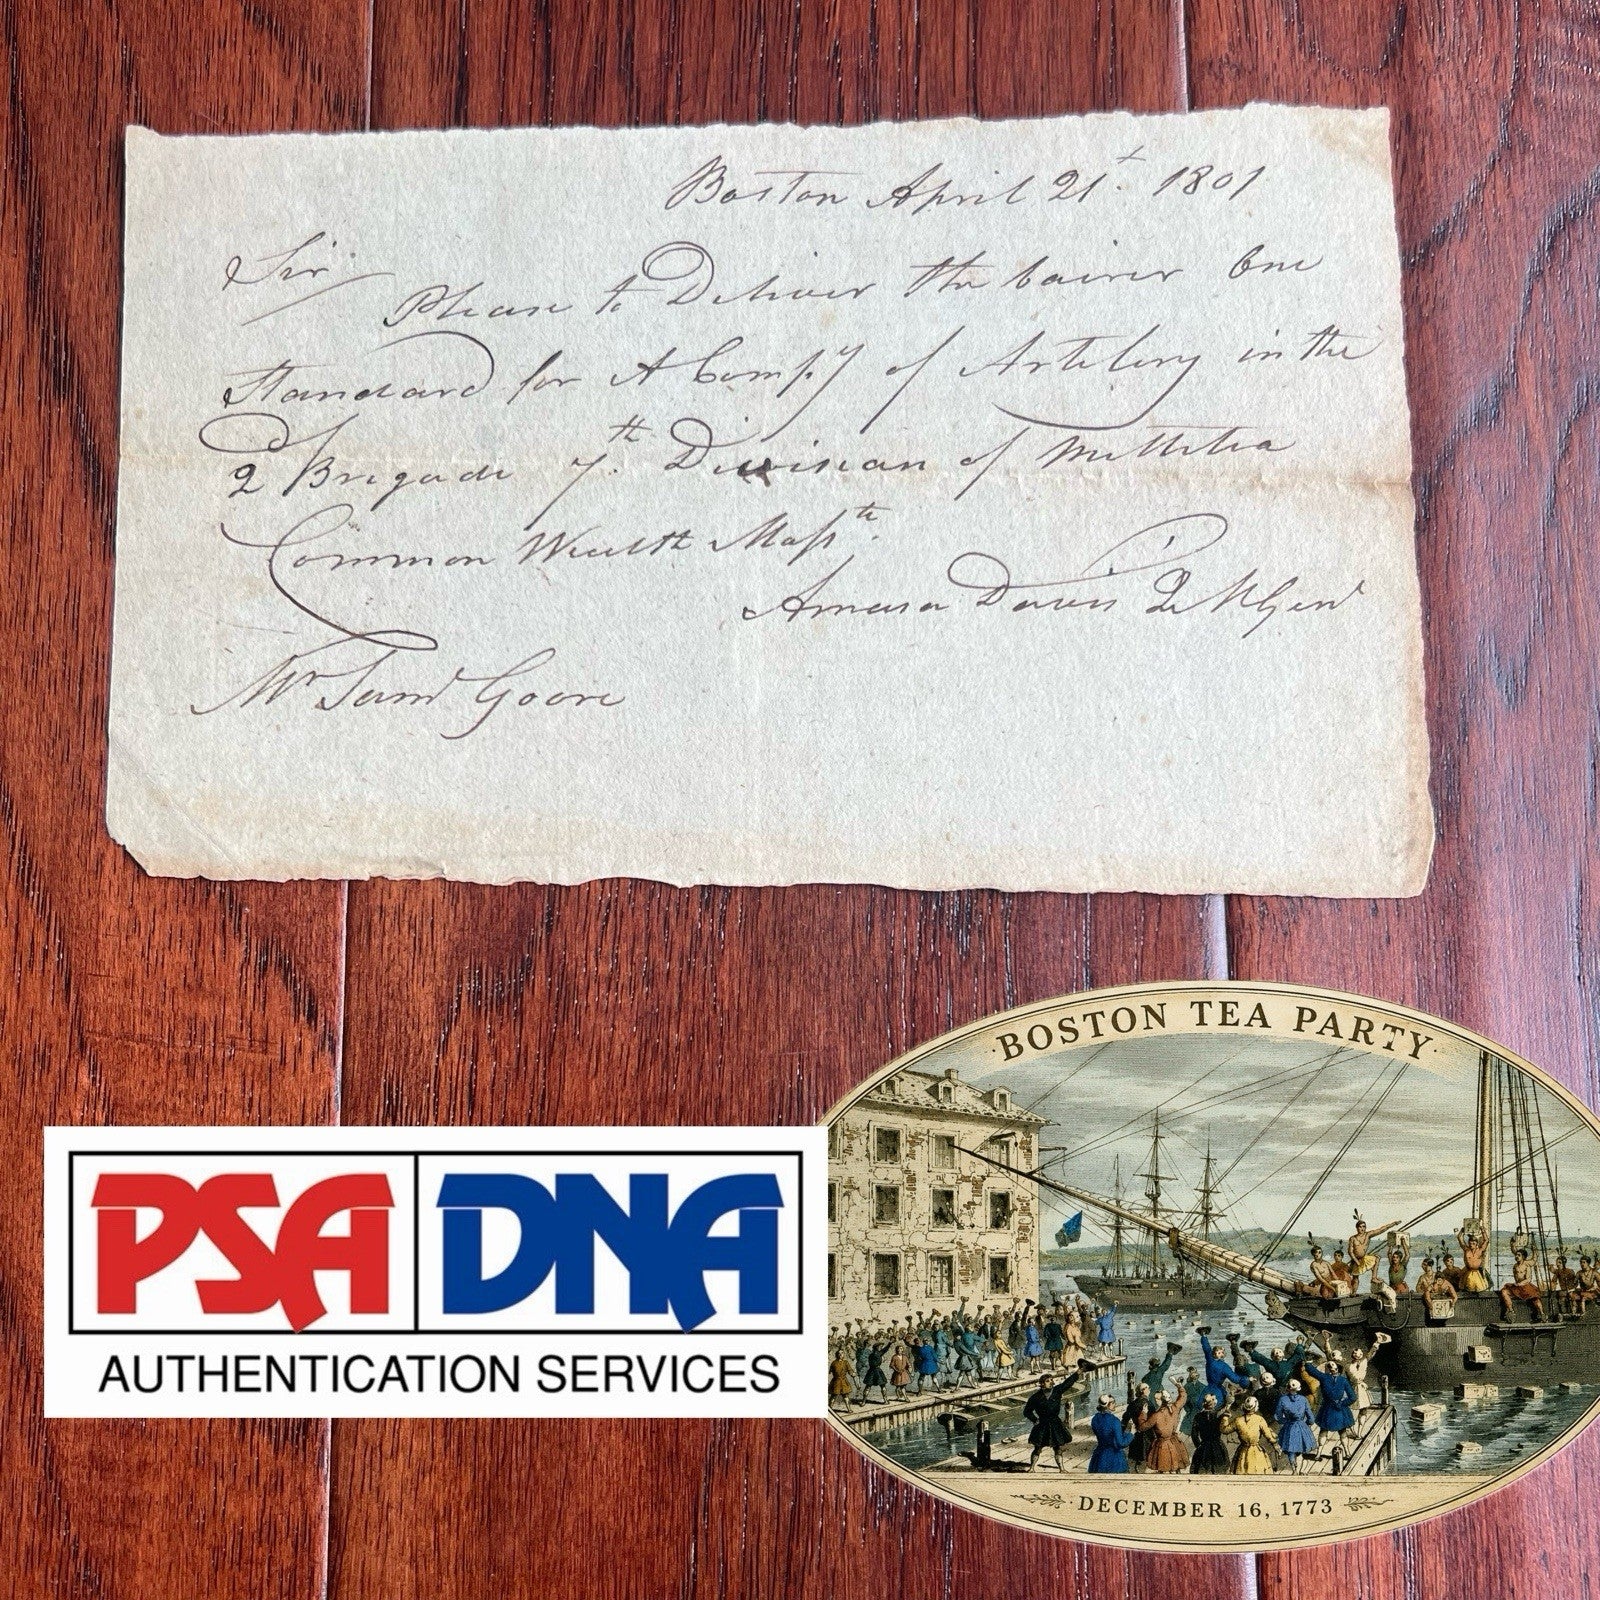 Boston April 21t. 1801
Sir
Please to Deliver the bairer One
Standard for A Compy of Artilery in the
2 Brigade 7th Division of Millitia
Common Wealth Massts.
Amasa Davis Qr M Genl
Mr Saml Goore
PSA DNA
AUTHENTICATION SERVICES
BOSTON TEA PARTY
DECEMBER 16, 1773